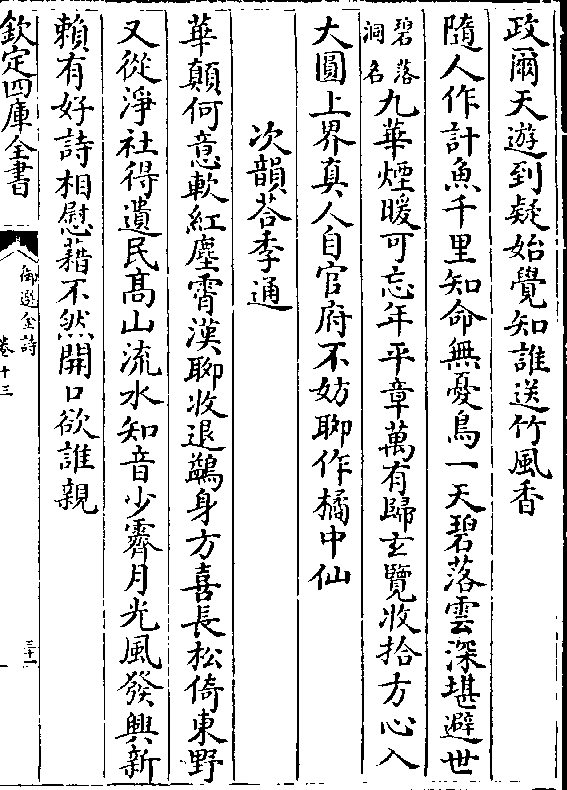 政爾天遊到疑始覺知誰送竹風香
隨人作計魚千里知命無憂鳥一天碧落雲深堪避世
碧落洞名九華煙暖可忘年平章萬有歸玄覽收拾方心入
大圓上界真人自官府不妨聊作橘中仙
次韻荅季通
華顛何意軟紅塵霄漢聊收退鷁身方喜長松倚東野
又從淨社得遺民髙山流水知音少霽月光風發興新
賴有好詩相慰藉不然開口欲誰親
欽定四庫全書
御選金詩
卷十三
三十一